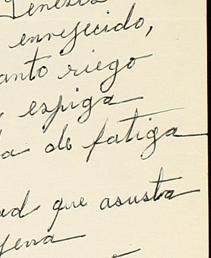 enrejecido,
anto riego
espiga
a de fatiga
ad que asusta